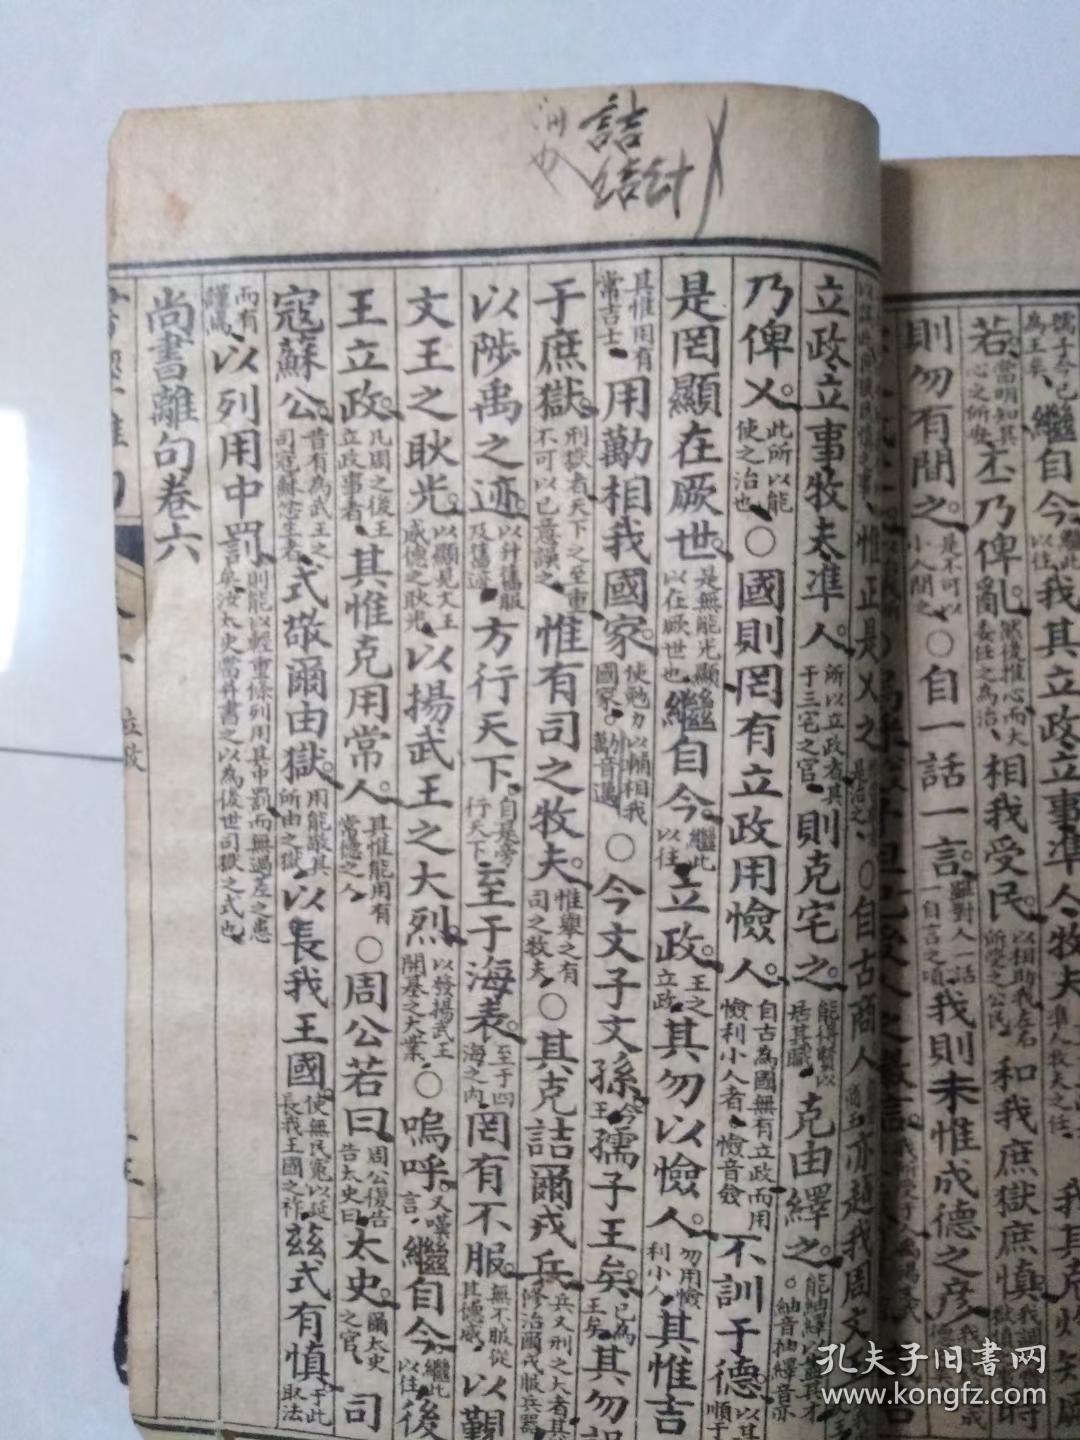 詰
結針
孺子今已
為王矣
繼自今
繼此
以往
我其立政立事準人牧夫
準人牧夫之任
我其克灼知厥
若
當明知其
心之所安
丕乃俾亂
然後推心而大
委任之為治
相我受民
以相助我左右
所受之公民
和我庶獄庶慎
時
則勿有間之
是不可以
小人間之
○自一話一言
雖對人一話
一自言之頃
我則末惟成德之彥
立政立事牧夫準人
所以立政者其
于三宅之官
則克宅之
能得賢以
居其職
克由繹之
乃俾乂
此所以能
使之治也
○國則罔有立政用憸人
自古為國無有立政而用
憸利小人者憸音僉
不訓于德
是罔顯在厥世
是無能光顯
以在厥世也
繼自今
繼此
以往
立政
王之
立政
其勿以憸人
勿用憸
利小人
其惟吉
其惟用有
常吉士
用勱相我國家
使勉力以輔相我
國家勱音邁
○今文子文孫
今
王
孺子王矣
已為
王矣
其勿誤
于庶獄
刑獄者天下之至重
不可以己意誤之
惟有司之牧夫
惟舉之有
司之牧夫
○其克詰爾戎兵
兵又刑之大者其
修治爾戎服兵器
以陟禹之迹
以升禹服
及舊迹
方行天下
行天下
至于海表
至于四
海之內
罔有不服
無不服從
其德威
以觀
文王之耿光
以顯見文王
盛德之耿光
以揚武王之大烈
以發揚武王
開基之大業
○嗚呼
又嘆
言
繼自今
繼此
以往
後
王立政
凡周之後王
立政事者
其惟克用常人
其惟能用有
常德之人
○周公若曰
周公復告
告太史曰
太史
爾太史
之官
司
寇蘇公
昔有為武王之
司寇蘇忿生者
式敬爾由獄
用能敬其
所由之獄
以長我王國
使無民冤以延
長我王國之祚
茲式有慎
于此
取法
而有
謹慎
以列用中罰
則能以輕重條列用其中罰而無過差之患
矣汝太史當并書之以為後世司獄之式也
尚書離句卷六
立政
孔夫子旧书网
www.kongfz.com